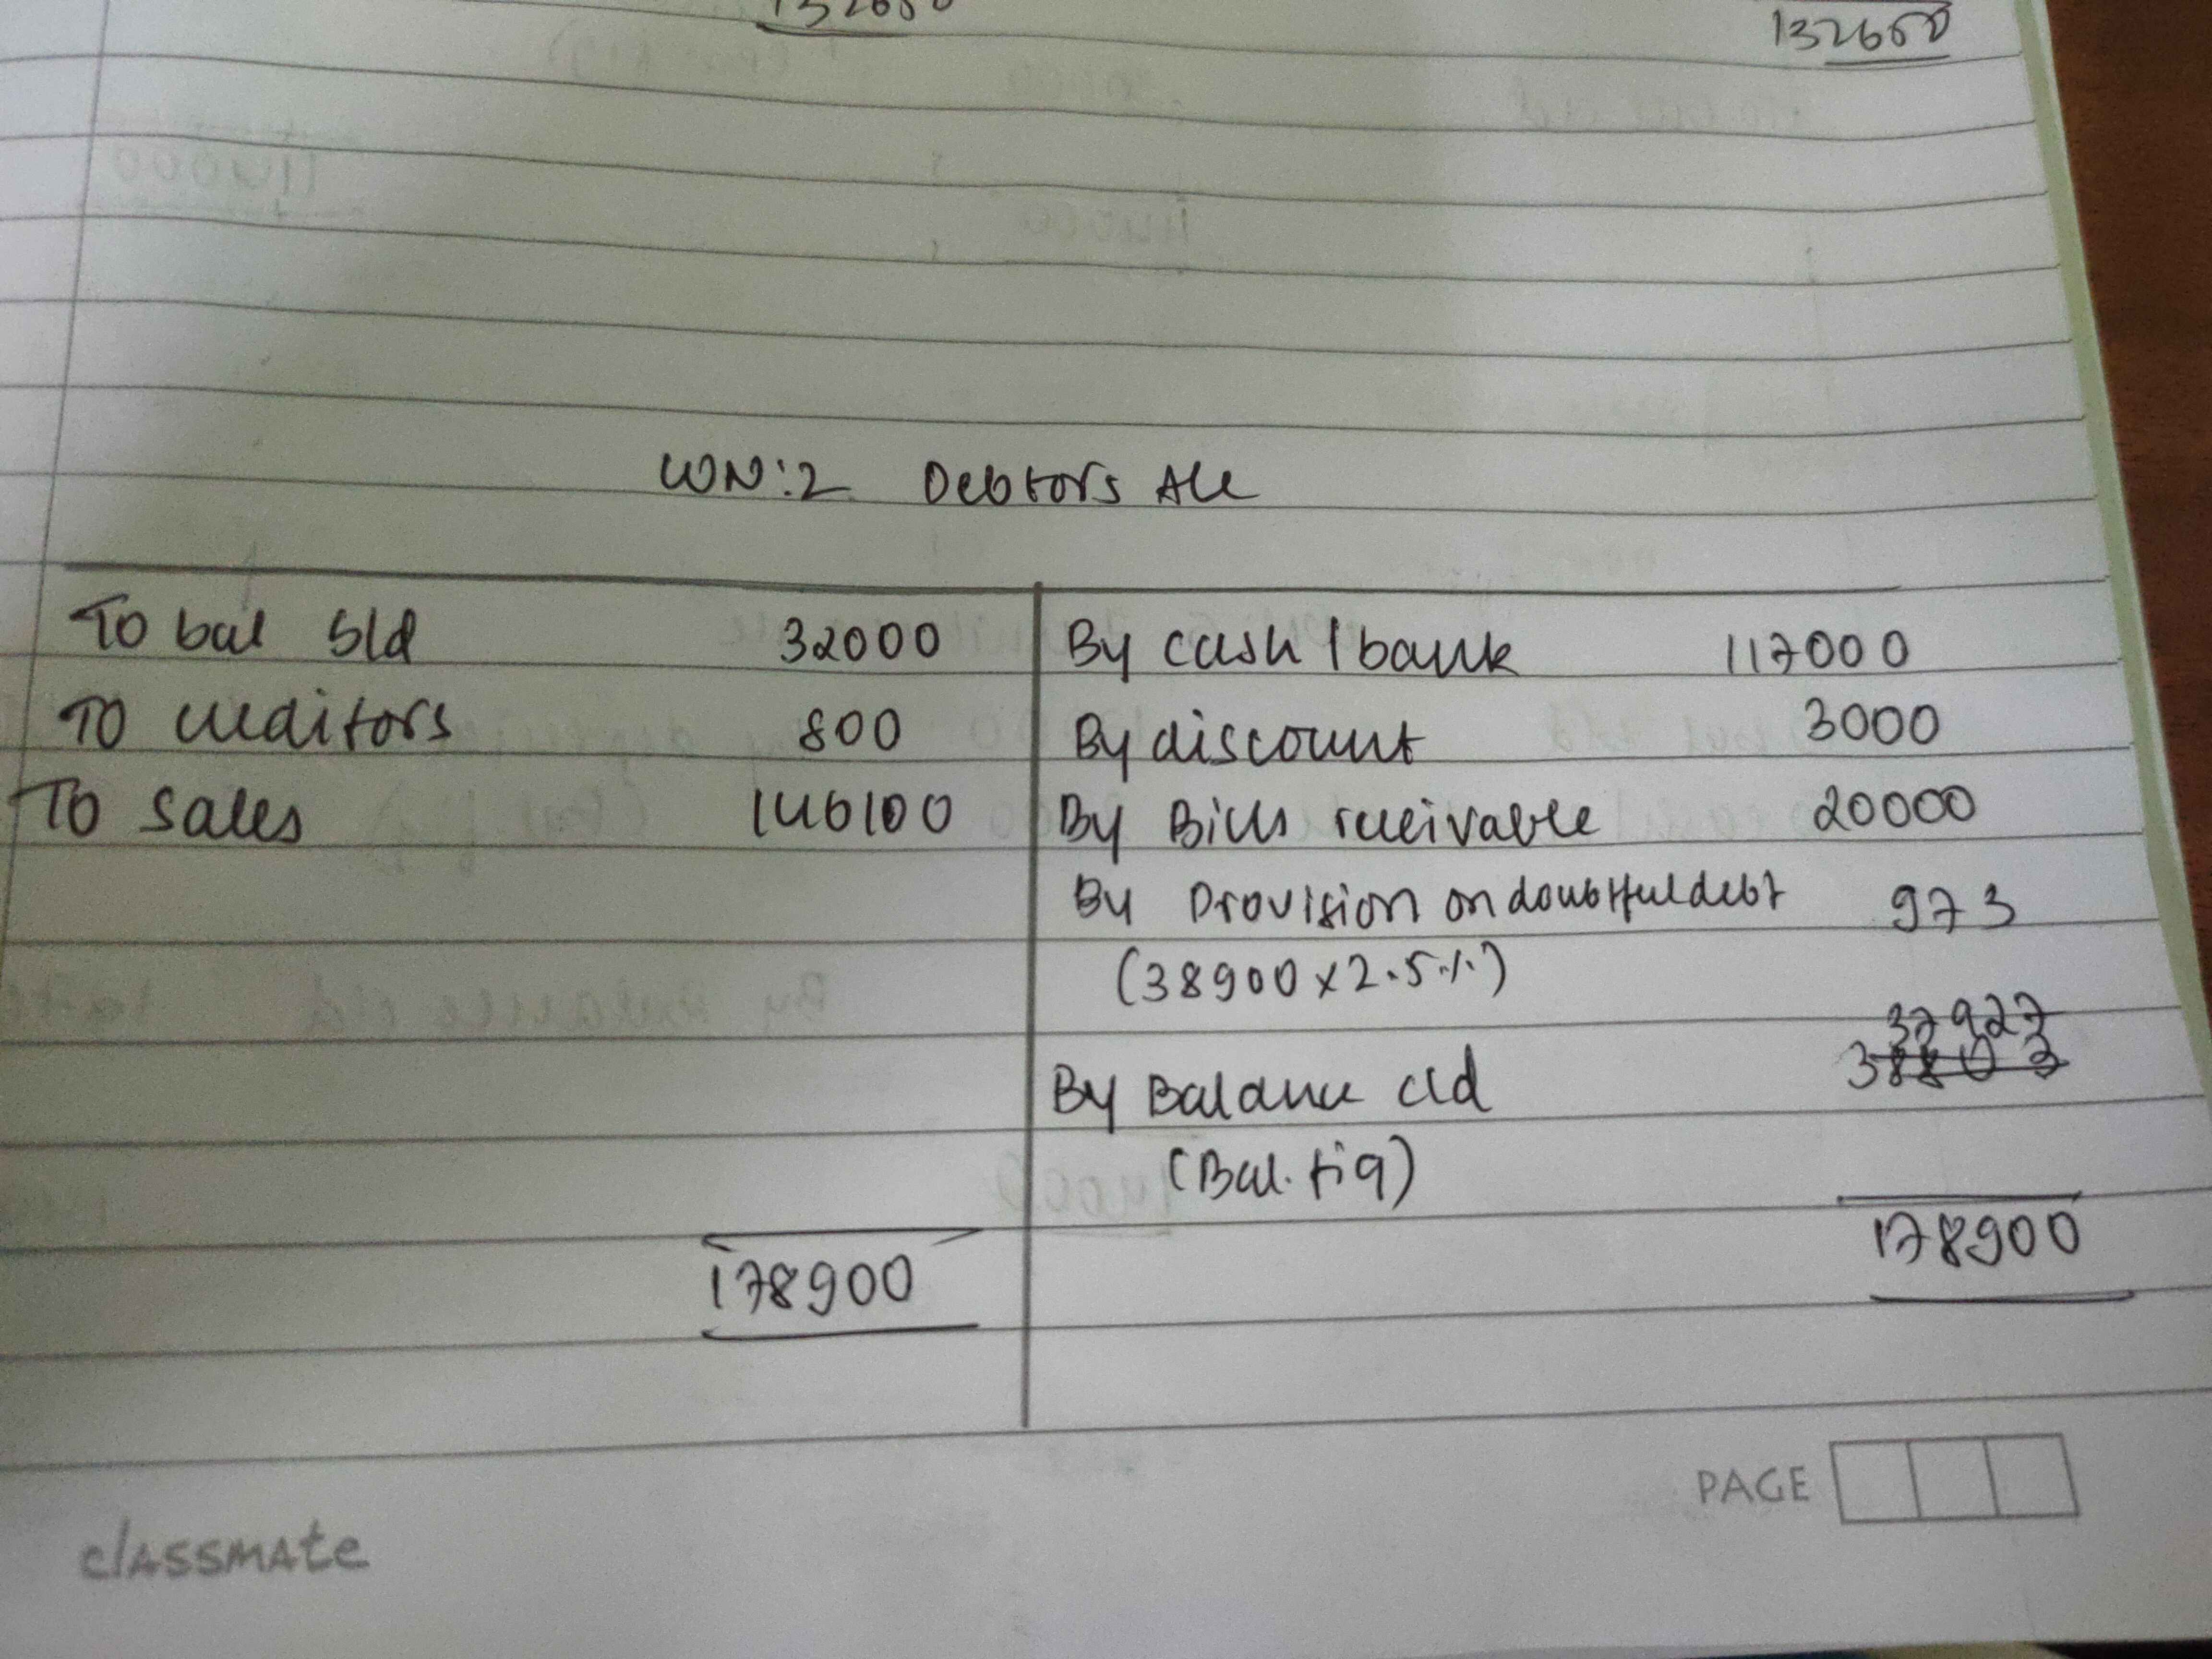 132650
132650
WN:2 Debtors A/c
To bal b/d 32000 By cash / bank 117000
To creditors 800 By discount 3000
To sales 146100 By Bills receivable 20000
By Provision on doubtful debt 973
(38900 x 2.5%)
37927
By Balance c/d 38803
(Bal. fig)
178900 178900
PAGE
classmate